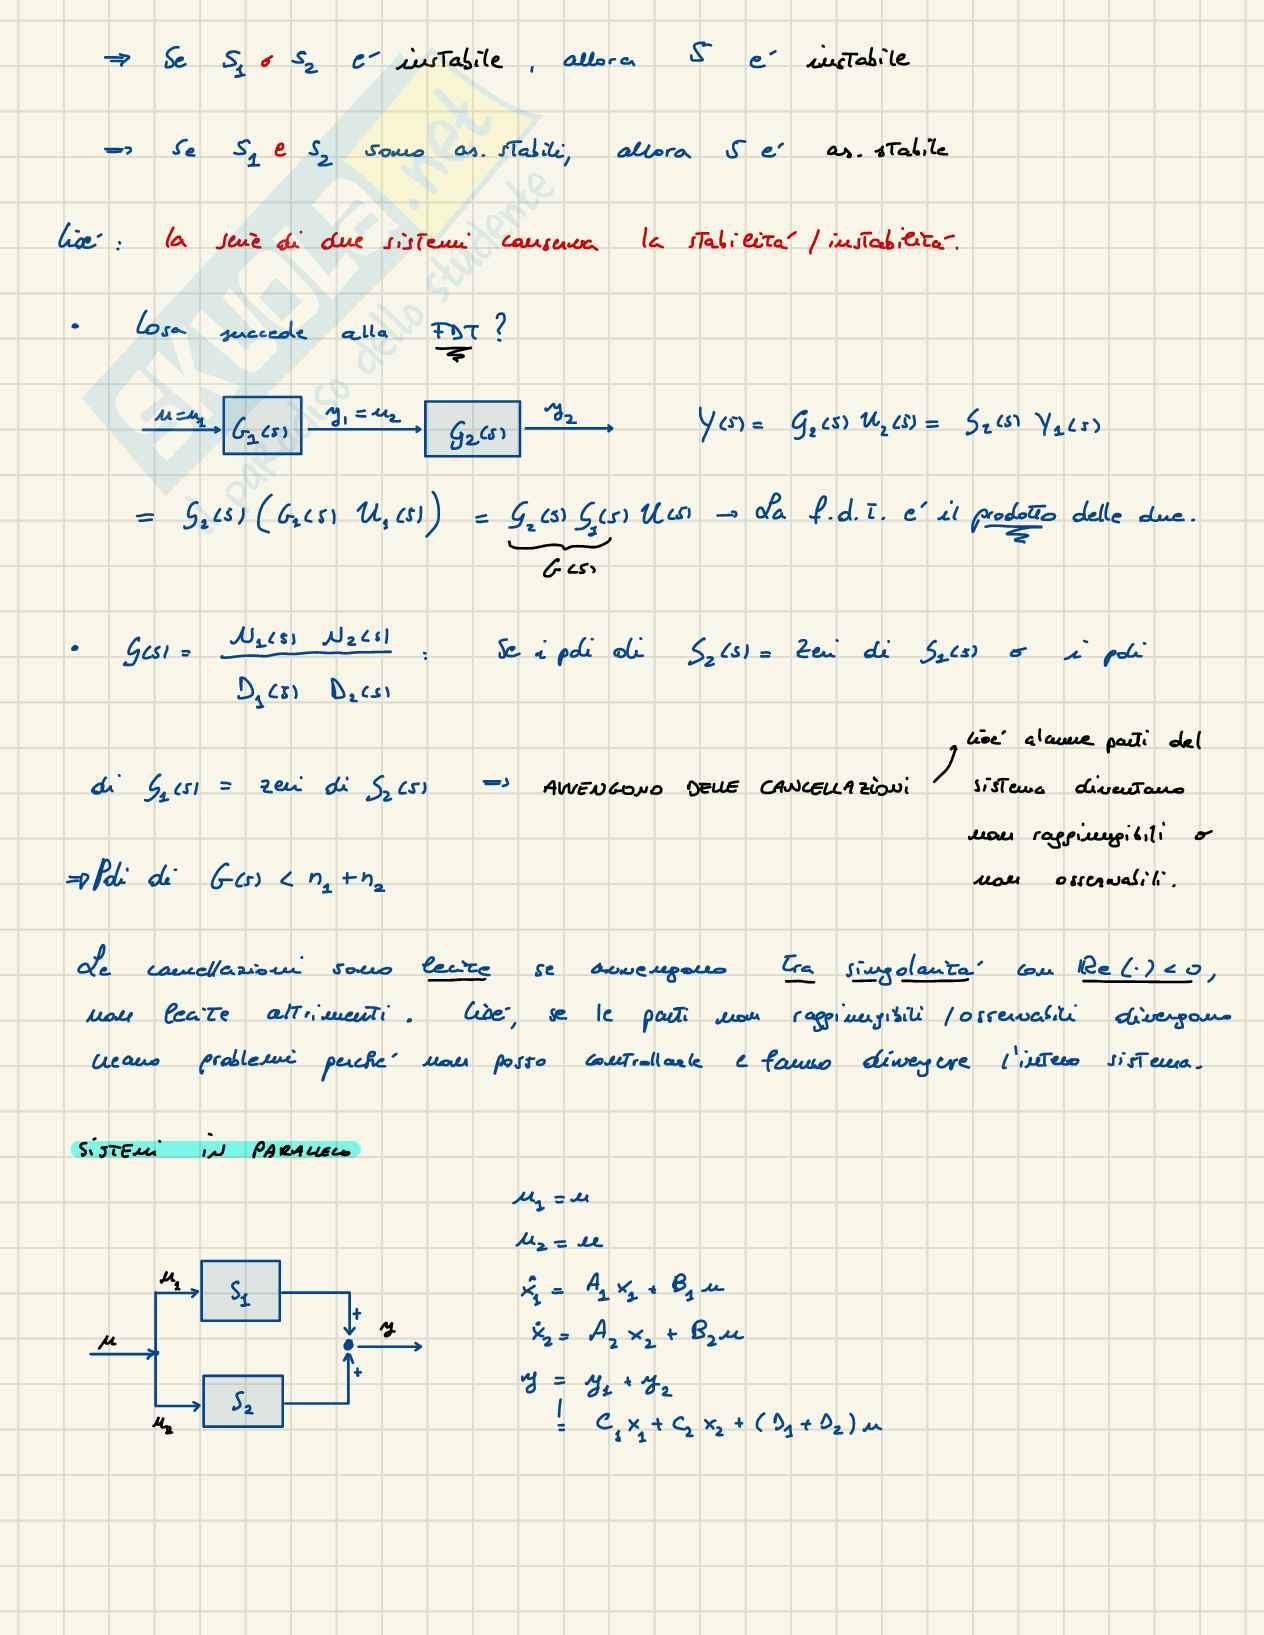 ⇒ Se S₁ o S₂ e' instabile, allora S e' instabile
⇒ se S₁ e S₂ sono as. stabili, allora S e' as. stabile
Cioe': la serie di due sistemi conserva la stabilita' / instabilita'.
• Cosa succede alla FDT?
u=u₁ G₁(s) y₁=u₂ G₂(s) y₂ Y(s) = G₂(s) U₂(s) = G₂(s) Y₁(s)
= G₂(s) (G₁(s) U₁(s)) = G₂(s) G₁(s) U(s) → La f.d.t. e' il prodotto delle due.
G(s)
• G(s) = N₁(s) N₂(s) / D₁(s) D₂(s) : Se i poli di G₂(s) = zeri di G₁(s) o i poli
di G₁(s) = zeri di G₂(s) ⇒ AVVENGONO DELLE CANCELLAZIONI
cioe' alcune parti del
sistema diventano
non raggiungibili o
non osservabili.
⇒ Poli di G(s) < n₁ + n₂
Le cancellazioni sono lecite se avvengono tra singolarita' con Re(·) < 0,
non lecite altrimenti. Cioe', se le parti non raggiungibili / osservabili divergono
creano problemi perche' non posso controllarle e fanno divergere l'intero sistema.
SISTEMI IN PARALLELO
u u₁ S₁ + y
u₂ S₂ +
u₁ = u
u₂ = u
ẋ₁ = A₁ x₁ + B₁ u
ẋ₂ = A₂ x₂ + B₂ u
y = y₁ + y₂
= C₁ x₁ + C₂ x₂ + (D₁ + D₂) u
SKUOLA.net
il paradiso dello studente